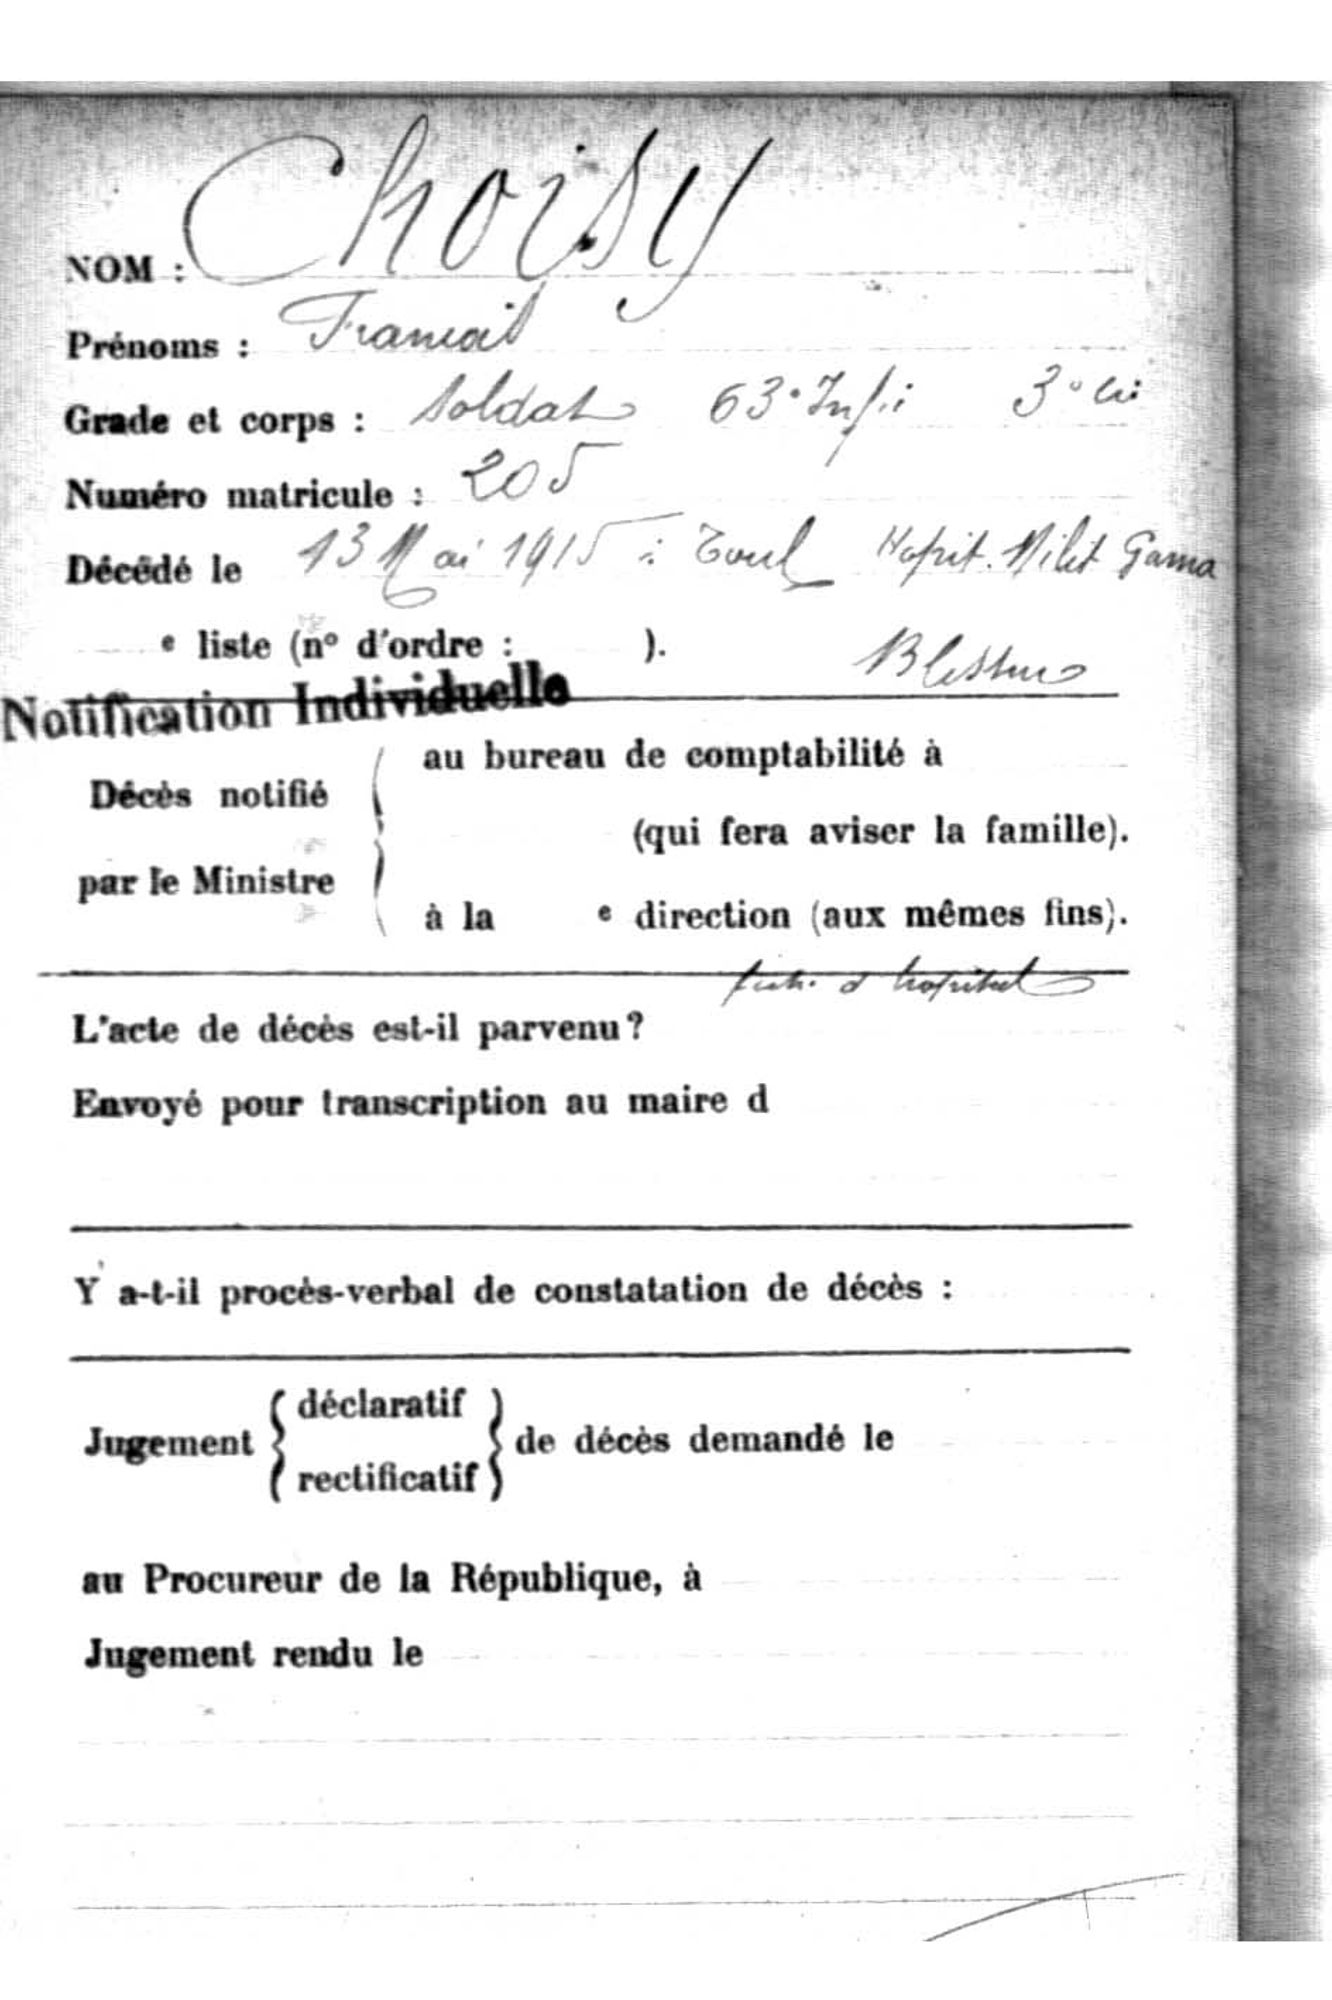 NOM : Choisy
Prénoms : Francois
Grade et corps : Soldat 63e Infie 3e Cie
Numéro matricule : 205
Décédé le 13 Mai 1915 à Toul Hopit. Milit Gama
e liste (no d'ordre : ). Blessures
Notification Individuelle
au bureau de comptabilité à
Décès notifié
(qui fera aviser la famille).
par le Ministre
à la e direction (aux mêmes fins).
d hopital
L'acte de décès est-il parvenu?
Envoyé pour transcription au maire d
Y a-t-il procès-verbal de constatation de décès :
déclaratif
Jugement de décès demandé le
rectificatif
au Procureur de la République, à
Jugement rendu le